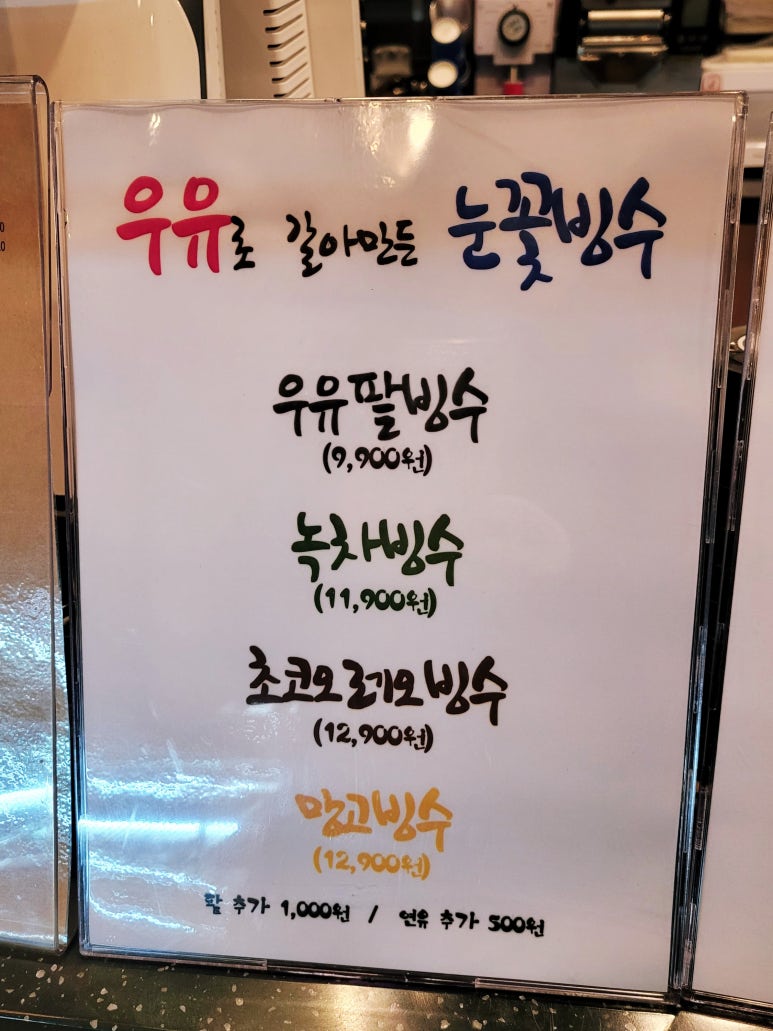 우유로 갈아만든 눈꽃빙수
우유팥빙수
(9,900원)
녹차빙수
(11,900원)
초코오레오빙수
(12,900원)
망고빙수
(12,900원)
팥 추가 1,000원 / 연유 추가 500원